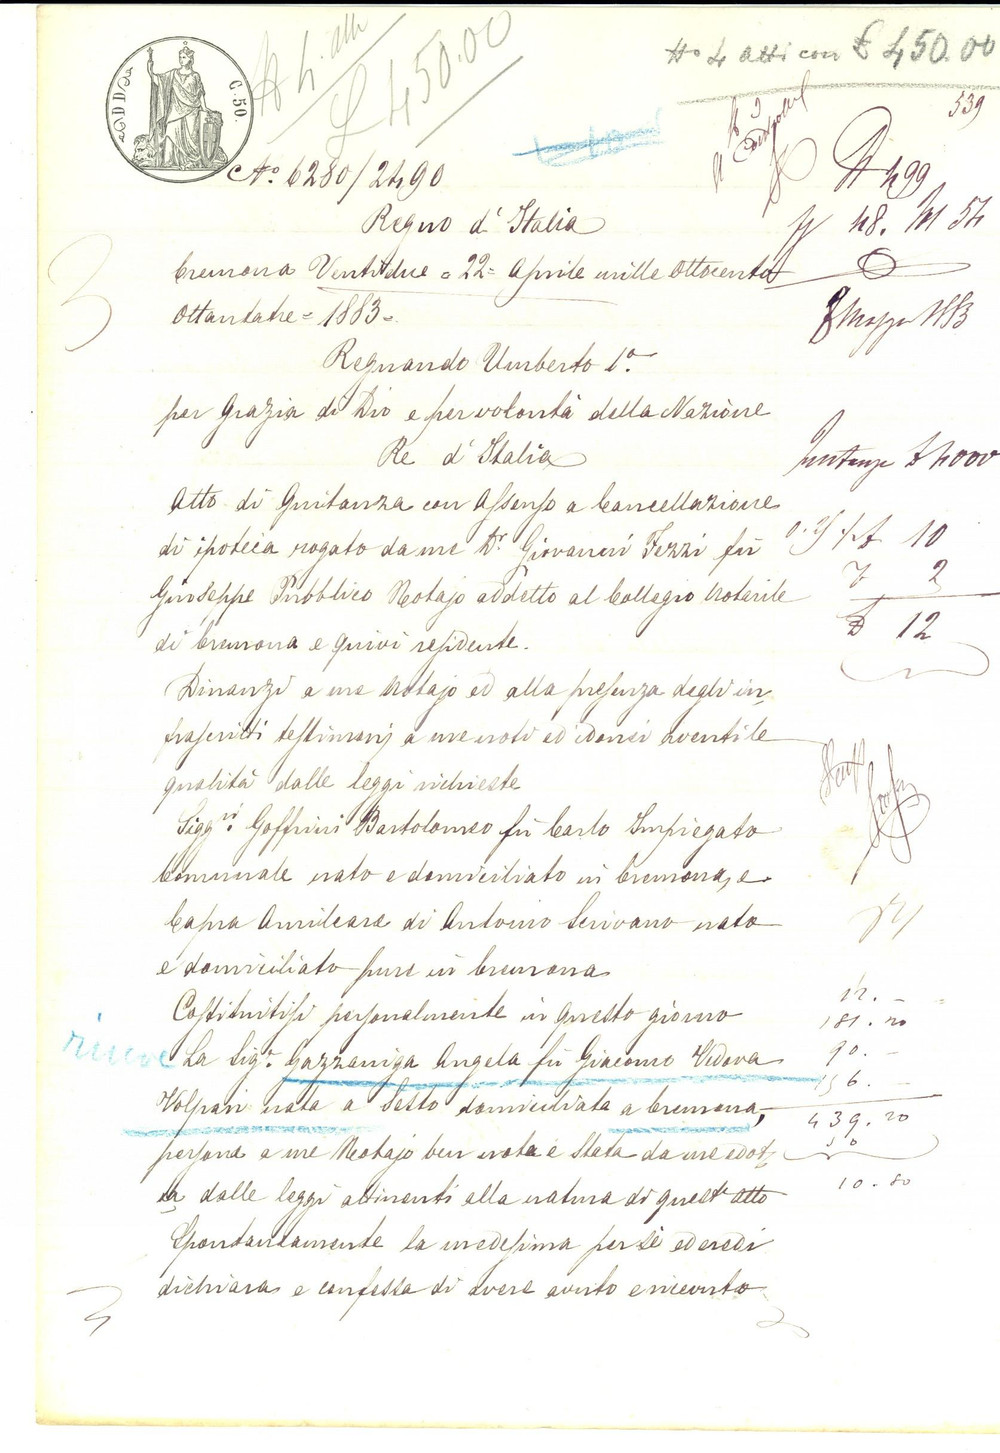 C. 50.
No 4 atti
£ 450.00
No 4 atti con £ 450.00
539
No 6280/2490
N 499
48. M 54
Regno d' Italia
Cremona Ventidue = 22 = Aprile mille ottocento
ottantatre = 1883 =
8 Maggio 1883
Regnando Umberto 1o
per Grazia di Dio e per volontà della Nazione
Re d' Italia
£ 4000
Atto di Quitanza con Assenso a Cancellazione
di ipoteca rogato da me Dr Giovanni Fezzi fu
10
Giuseppe Pubblico Notajo addetto al Collegio Notarile
2
di Cremona e quivi residente.
12
Dinanzi a me Notajo ed alla presenza degli in=
frascritti testimonj a me noti ed idonei aventi le
qualità dalle leggi richieste
Siggri Goffrini Bartolomeo fu Carlo Impiegato
Comunale nato e domiciliato in Cremona, e
Capra Amilcare di Antonio Scrivano nato
e domiciliato pure in Cremona
12. -
Costituitisi personalmente in questo giorno
181. 20
La Sigra Gazzaniga Angela fu Giacomo Vedova
90. -
156. -
Volpari nata a Sesto domiciliata a Cremona,
439. 20
persona a me Notajo ben nota e stata da me edot=
ta dalle leggi attinenti alla natura di quest' atto
10. 80
Spontaneamente la medesima per sè ed eredi
dichiara e confessa di avere avuto e ricevuto